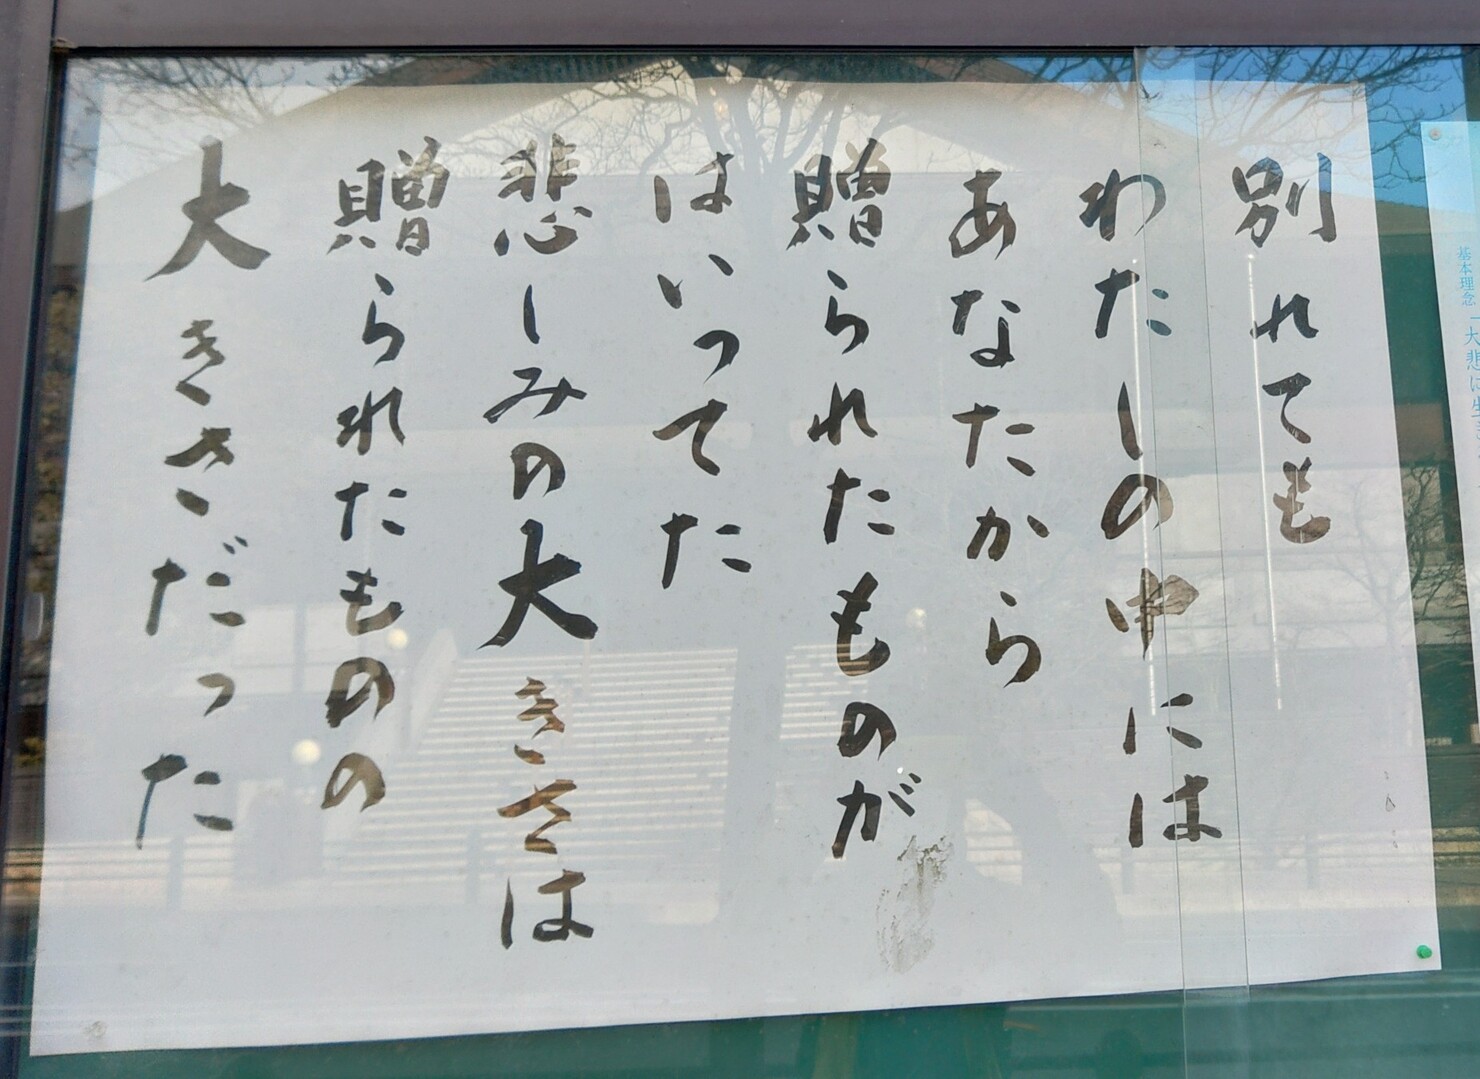 別れても
わたしの中には
あなたから
贈られたものが
はいってた
悲しみの大きさは
贈られたものの
大きさだった
基本理念「大悲に生き